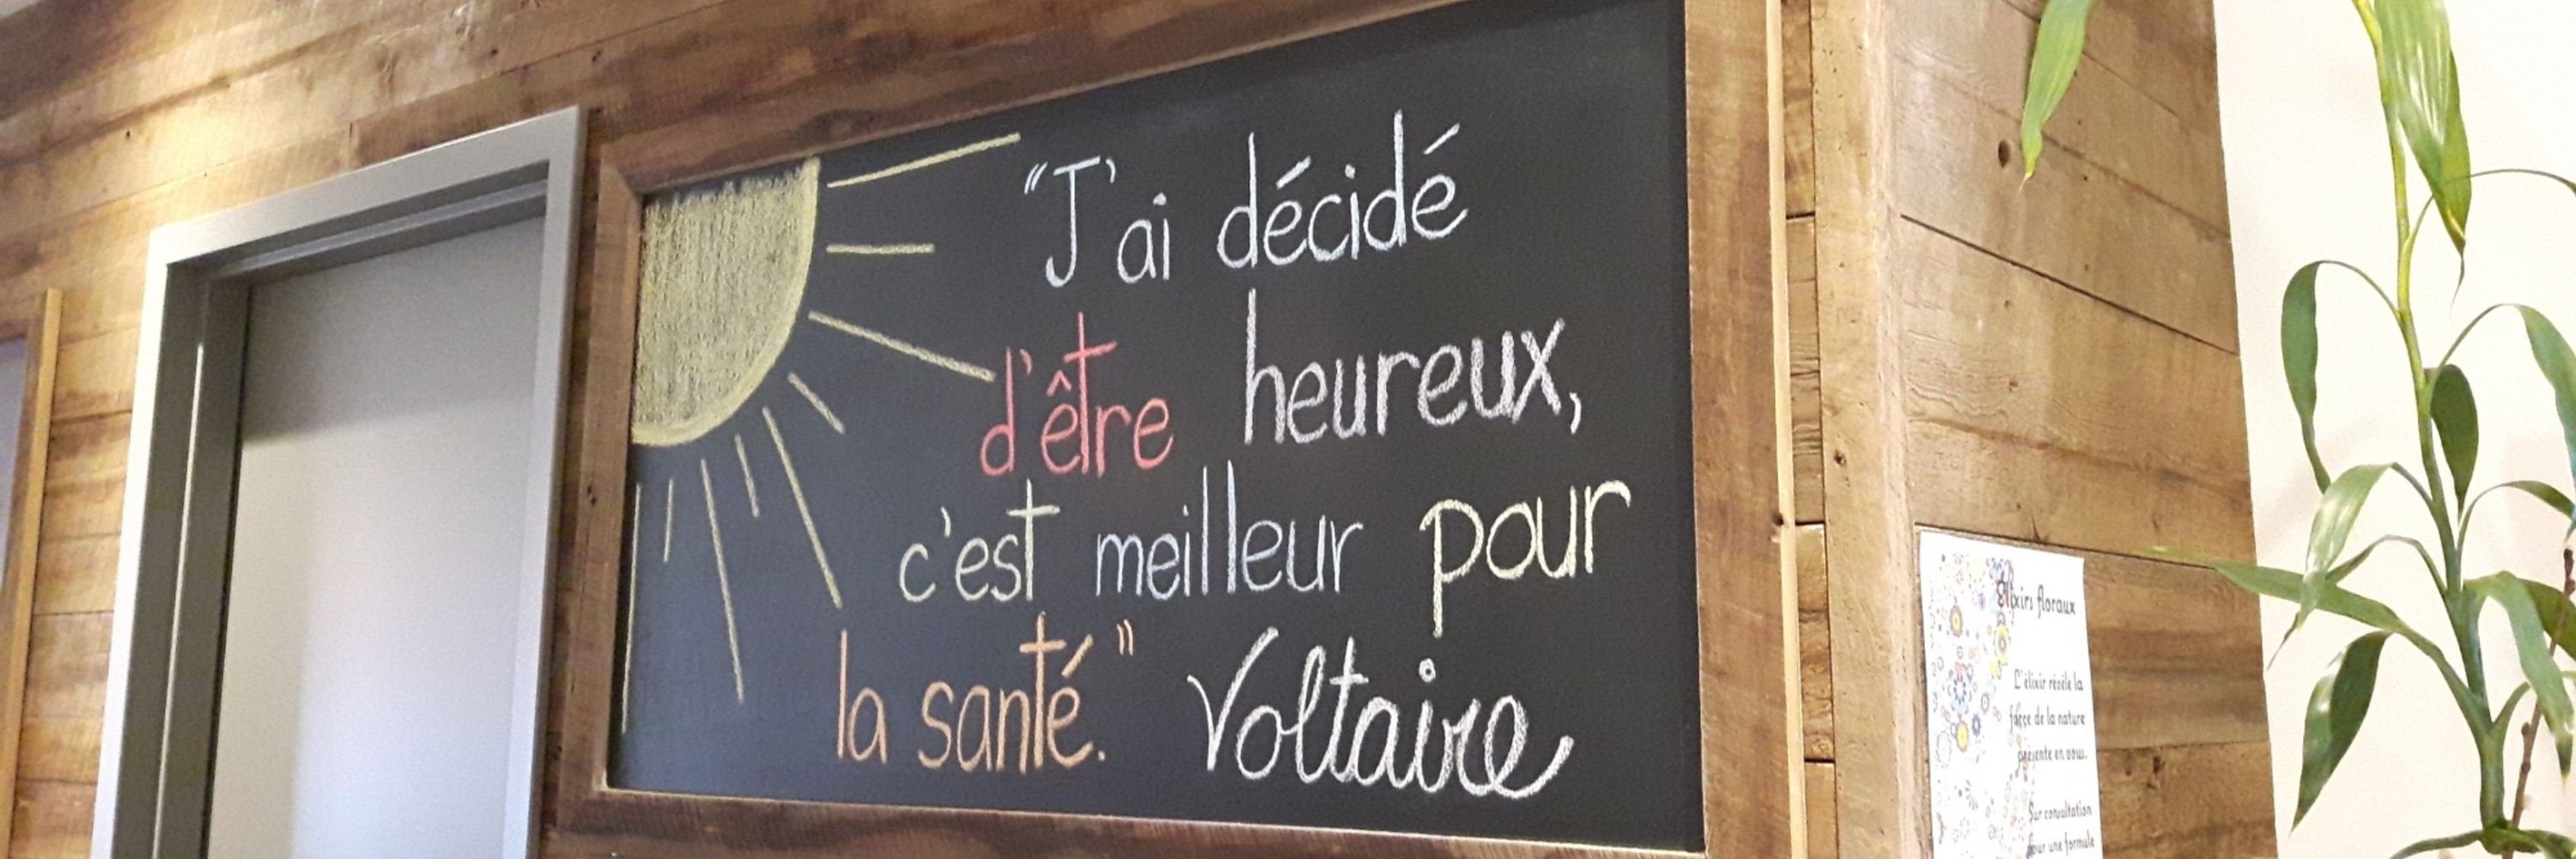 "J'ai décidé
d'être heureux,
c'est meilleur pour
la santé." Voltaire
Élixirs floraux
L'élixir révèle la
force de la nature
présente en vous.
Sur consultation
pour une formule